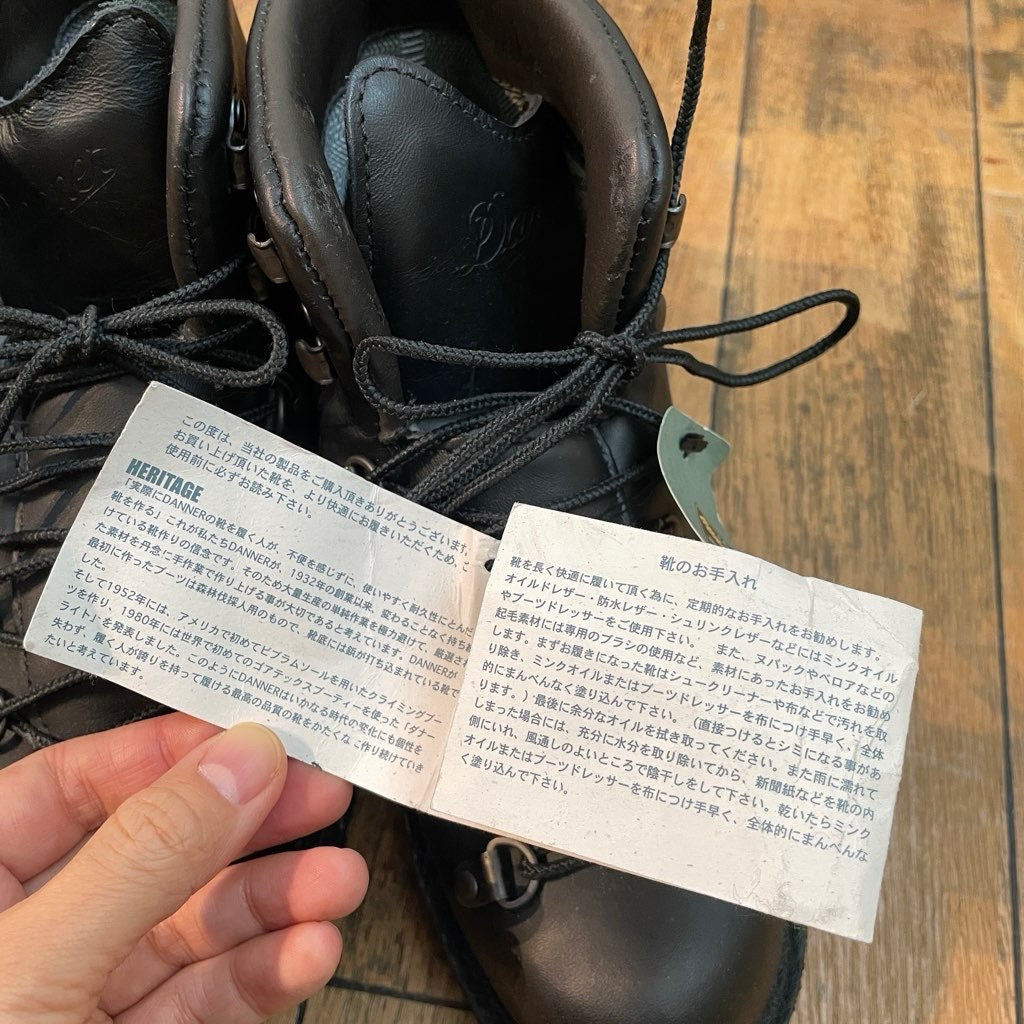 Dan
この度は、当社の製品をご購入頂きありがとうございます。
お買い上げ頂いた靴を、より快適にお履きいただくため、ご
使用前に必ずお読み下さい。
HERITAGE
「実際にDANNERの靴を履く人が、不便を感じずに、使いやすく耐久性にとんだ
靴を作る」これが私たちDANNERが、1932年の創業以来、変わることなく持ち続
けている靴作りの信念です。そのため大量生産の単純作業を極力避けて、厳選され
た素材を丹念に手作業で作り上げる事が大切であると考えています。DANNERが
最初に作ったブーツは森林伐採人用のもので、靴底には鋲が打ち込まれている靴で
した。
そして1952年には、アメリカで初めてビブラムソールを用いたクライミングブー
ツを作り、1980年には世界で初めてのゴアテックスブーティーを使った「ダナー
ライト」を発表しました。このようにDANNERはいかなる時代の変化にも個性を
失わず、履く人が誇りを持って履ける最高の品質の靴をかたくなに作り続けていき
たいと考えています。
靴のお手入れ
靴を長く快適に履いて頂く為に、定期的なお手入れをお勧めします。
オイルドレザー・防水レザー・シュリンクレザーなどにはミンクオイル
やブーツドレッサーをご使用下さい。 また、ヌバックやベロアなどの
起毛素材には専用のブラシの使用など、素材にあったお手入れをお勧め
します。まずお履きになった靴はシュークリーナーや布などで汚れを取
り除き、ミンクオイルまたはブーツドレッサーを布につけ手早く、全体
的にまんべんなく塗り込んで下さい。（直接つけるとシミになる事があ
ります。）最後に余分なオイルを拭き取ってください。また雨に濡れて
しまった場合には、充分に水分を取り除いてから、新聞紙などを靴の内
側にいれ、風通しのよいところで陰干しをして下さい。乾いたらミンク
オイルまたはブーツドレッサーを布につけ手早く、全体的にまんべんな
く塗り込んで下さい。